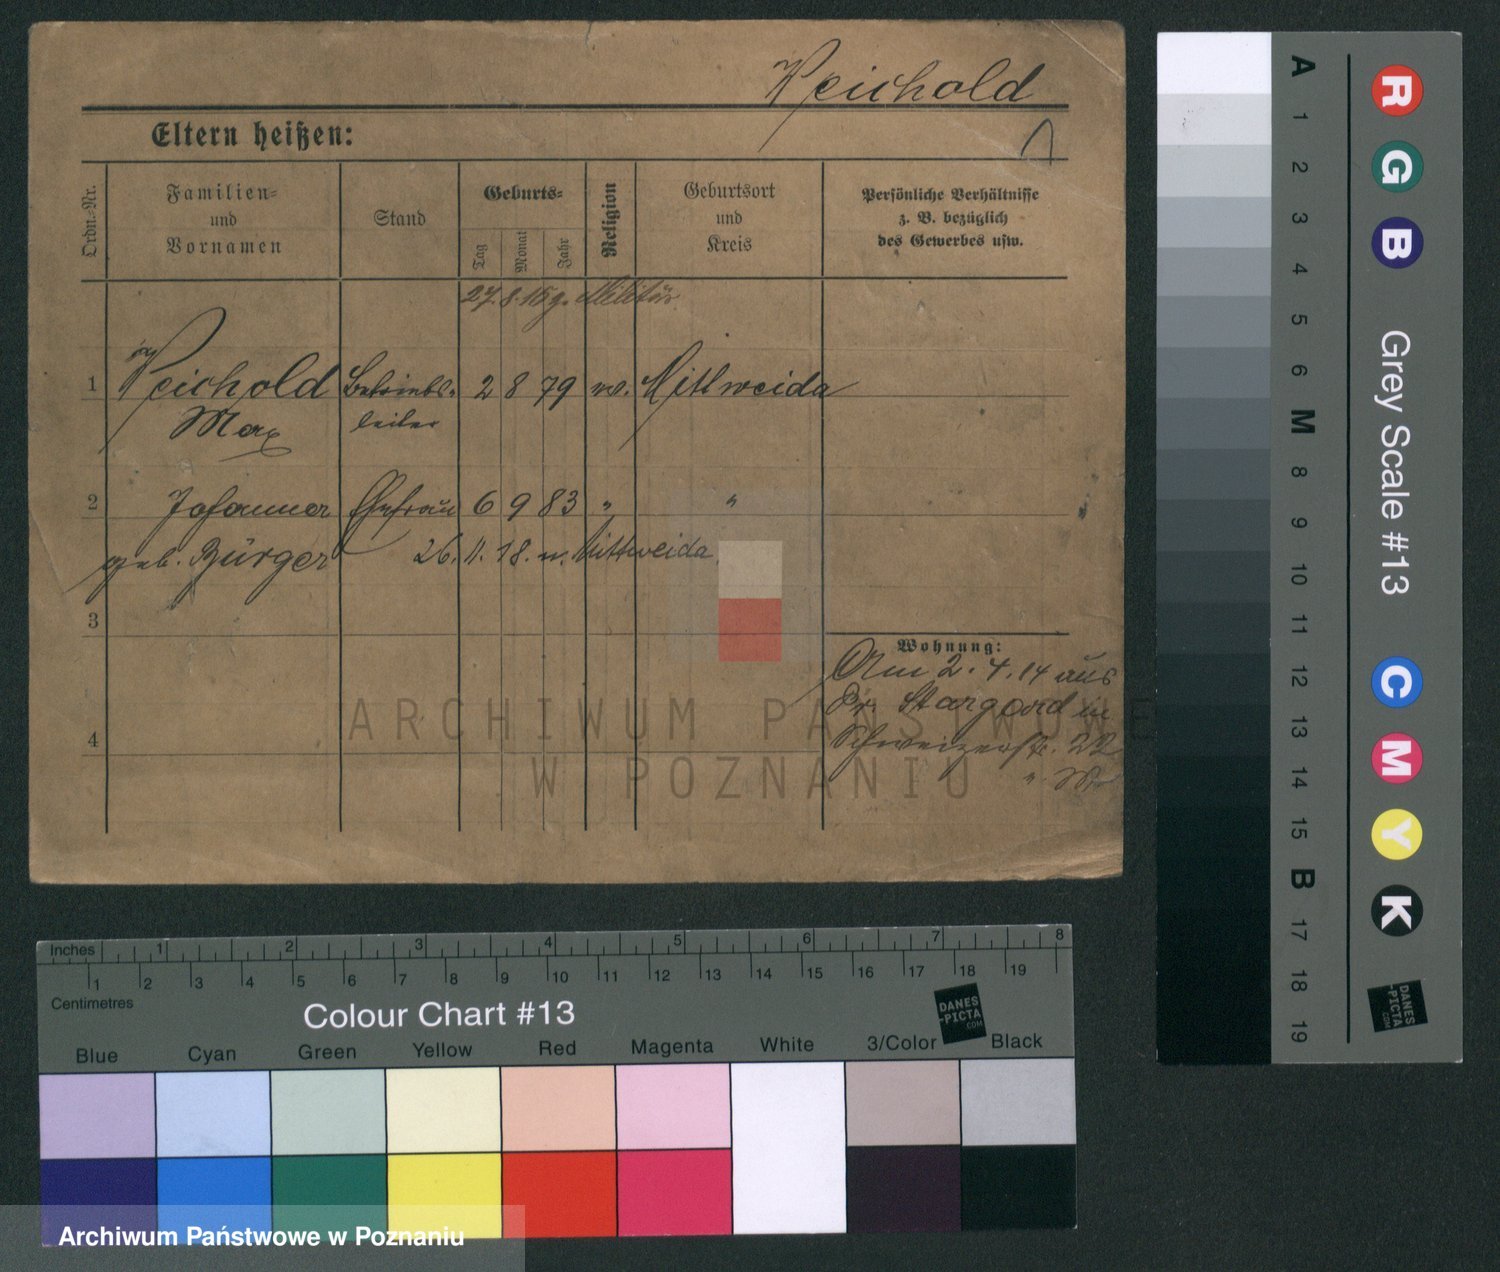 Reichold
Eltern heißen:
Ordn.=Nr.
Familien=
und
Vornamen
Stand
Geburts=
Tag
Monat
Jahr
Religion
Geburtsort
und
Kreis
Persönliche Verhältnisse
z. B. bezüglich
des Gewerbes usw.
27.8.15 z. Militär
1 Reichold Betriebs- 2 8 79 ev. Mittweida
Max leiter
2 Johanne Ehefrau 6 9 83 " "
geb. Bürger 26. 11. 18. n. Mittweida
3
4
Wohnung:
Am 2.4.14 aus
Pr. Stargard in
Schweizerstr. 22
ARCHIWUM PAŃSTWOWE
W POZNANIU
Inches 1 2 3 4 5 6 7 8
1 2 3 4 5 6 7 8 9 10 11 12 13 14 15 16 17 18 19
Centimetres
Colour Chart #13
DANES
-PICTA
.COM
Blue Cyan Green Yellow Red Magenta White 3/Color Black
Archiwum Państwowe w Poznaniu
A 1 2 3 4 5 6 M 8 9 10 11 12 13 14 15 B 17 18 19
R G B
Grey Scale #13
C M Y K
DANES
-PICTA
.COM